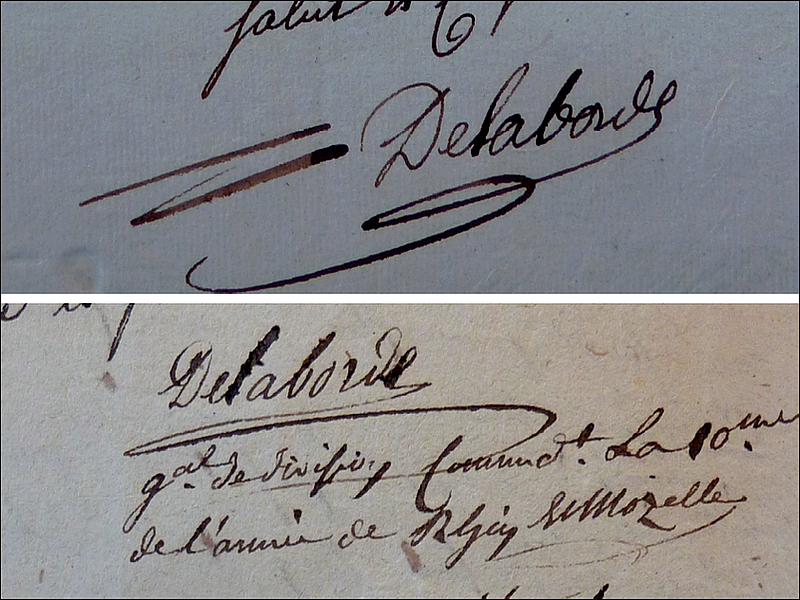 Salut et f
Delaborde
Delaborde
gal. de division Commdt. La 10me
de l'armée de Rhin et Mozelle